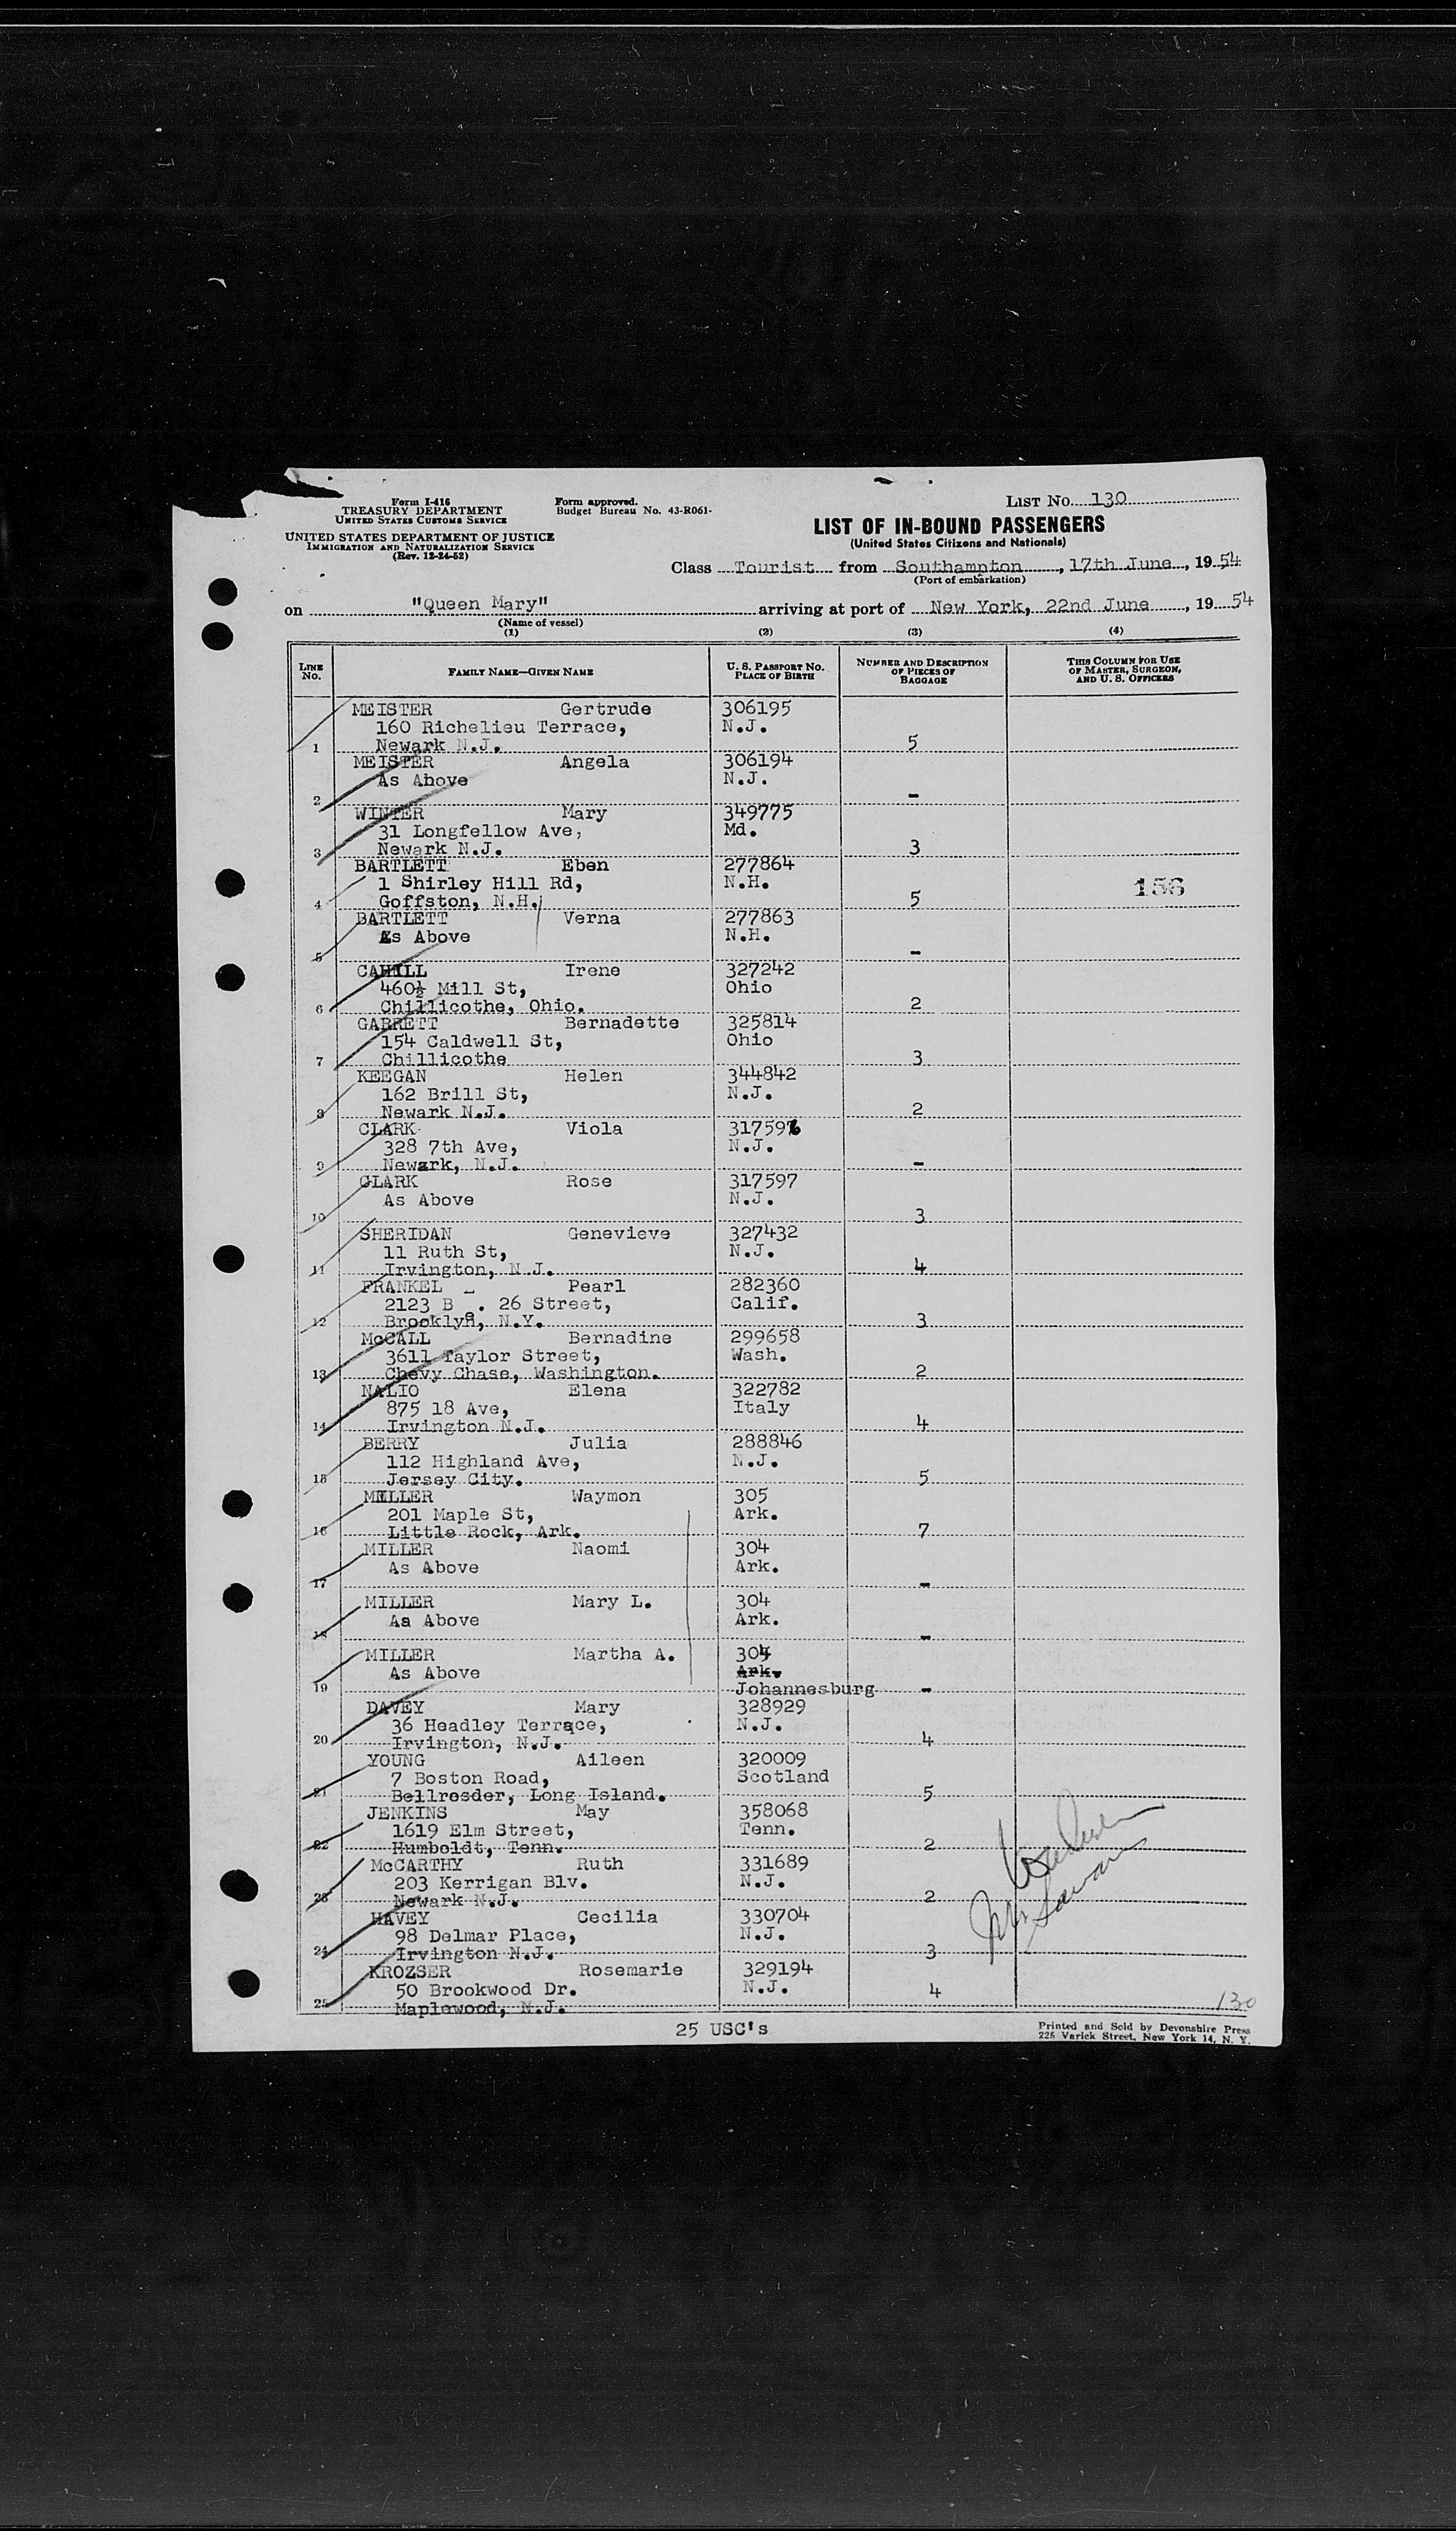 Form I-416
TREASURY DEPARTMENT
UNITED STATES CUSTOMS SERVICE
UNITED STATES DEPARTMENT OF JUSTICE
IMMIGRATION AND NATURALIZATION SERVICE
(Rev. 12-24-52)
Form approved.
Budget Bureau No. 43-R061-
LIST NO. 130
LIST OF IN-BOUND PASSENGERS
(United States Citizens and Nationals)
Class Tourist from Southampton, 17th June, 1954
(Port of embarkation)
on "Queen Mary" arriving at port of New York, 22nd June, 1954
(Name of vessel)
(1) (2) (3) (4)
LINE NO. FAMILY NAME—GIVEN NAME U. S. PASSPORT NO. PLACE OF BIRTH NUMBER AND DESCRIPTION OF PIECES OF BAGGAGE THIS COLUMN FOR USE OF MASTER, SURGEON, AND U. S. OFFICERS
MEISTER Gertrude 306195
160 Richelieu Terrace, N.J.
1 Newark N.J. 5
MEISTER Angela 306194
As Above N.J.
2 -
WINTER Mary 349775
31 Longfellow Ave, Md.
3 Newark N.J. 3
BARTLETT Eben 277864
1 Shirley Hill Rd, N.H. 156
4 Goffston, N.H. 5
BARTLETT Verna 277863
As Above N.H.
5 -
CAHILL Irene 327242
460½ Mill St, Ohio
6 Chillicothe, Ohio. 2
GARRETT Bernadette 325814
154 Caldwell St, Ohio
7 Chillicothe 3
KEEGAN Helen 344842
162 Brill St, N.J.
8 Newark N.J. 2
CLARK Viola 317596
328 7th Ave, N.J.
9 Newark, N.J. -
CLARK Rose 317597
As Above N.J.
10 3
SHERIDAN Genevieve 327432
11 Ruth St, N.J.
11 Irvington, N.J. 4
FRANKEL Pearl 282360
2123 B . 26 Street, Calif.
12 Brooklyn, N.Y. 3
McCALL Bernadine 299658
3611 Taylor Street, Wash.
13 Chevy Chase, Washington. 2
NALIO Elena 322782
875 18 Ave, Italy
14 Irvington N.J. 4
BERRY Julia 288846
112 Highland Ave, N.J.
15 Jersey City. 5
MILLER Waymon 305
201 Maple St, Ark.
16 Little Rock, Ark. 7
MILLER Naomi 304
As Above Ark.
17 -
MILLER Mary L. 304
Aa Above Ark.
18 -
MILLER Martha A. 304
As Above Ark.
19 Johannesburg -
DAVEY Mary 328929
36 Headley Terrace, N.J.
20 Irvington, N.J. 4
YOUNG Aileen 320009
7 Boston Road, Scotland
21 Bellrosder, Long Island. 5
JENKINS May 358068
1619 Elm Street, Tenn.
22 Humboldt, Tenn. 2
McCARTHY Ruth 331689
203 Kerrigan Blv. N.J.
23 Newark N.J. 2
HAVEY Cecilia 330704
98 Delmar Place, N.J.
24 Irvington N.J. 3
KROZSER Rosemarie 329194
50 Brookwood Dr. N.J. 4
25 Maplewood, N.J. 130
25 USC's
Printed and Sold by Devonshire Press
225 Varick Street, New York 14, N. Y.